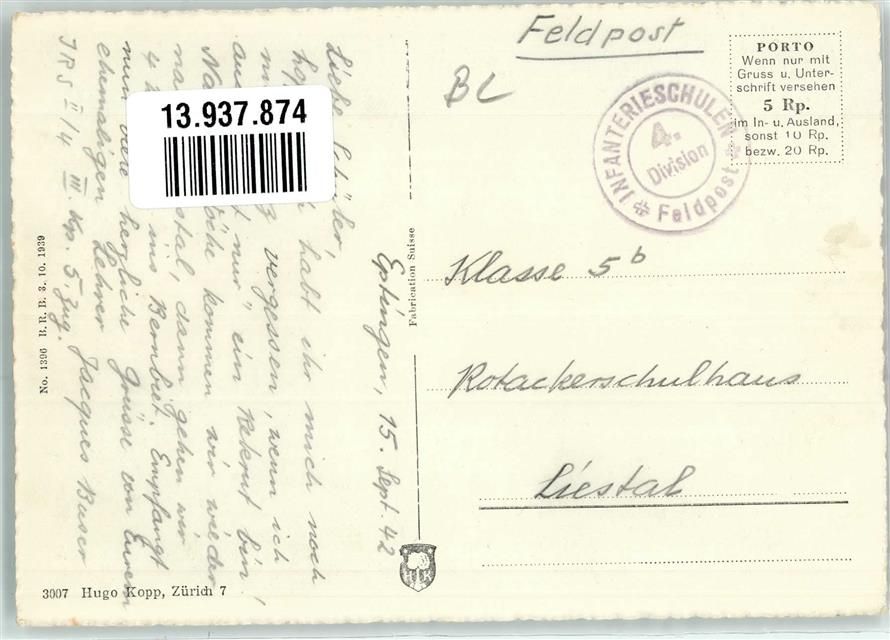 Feldpost
BL
PORTO
Wenn nur mit
Gruss u. Unter-
schrift versehen
5 Rp.
im In- u. Ausland,
sonst 10 Rp.
bezw. 20 Rp.
INFANTERIESCHULEN
4.
Division
Feldpost
13.937.874
Klasse 5b
Rotackerschulhaus
Liestal
Eptingen, 15. Sept. 42
Liebe Schüler,
habt ihr mich noch
vergessen, wenn ich
"nur" ein Rekrut bin,
kommen wir wieder
dann gehen wir
4 ins Bernbiet. Empfangt
nun viele herzliche Grüsse von Eurem
ehemaligen Lehrer Jacques Buser
IRS II/4 III. Kp. 5. Zug.
Fabrication Suisse
No. 1396 B. R. B. 3. 10. 1939
3007 Hugo Kopp, Zürich 7